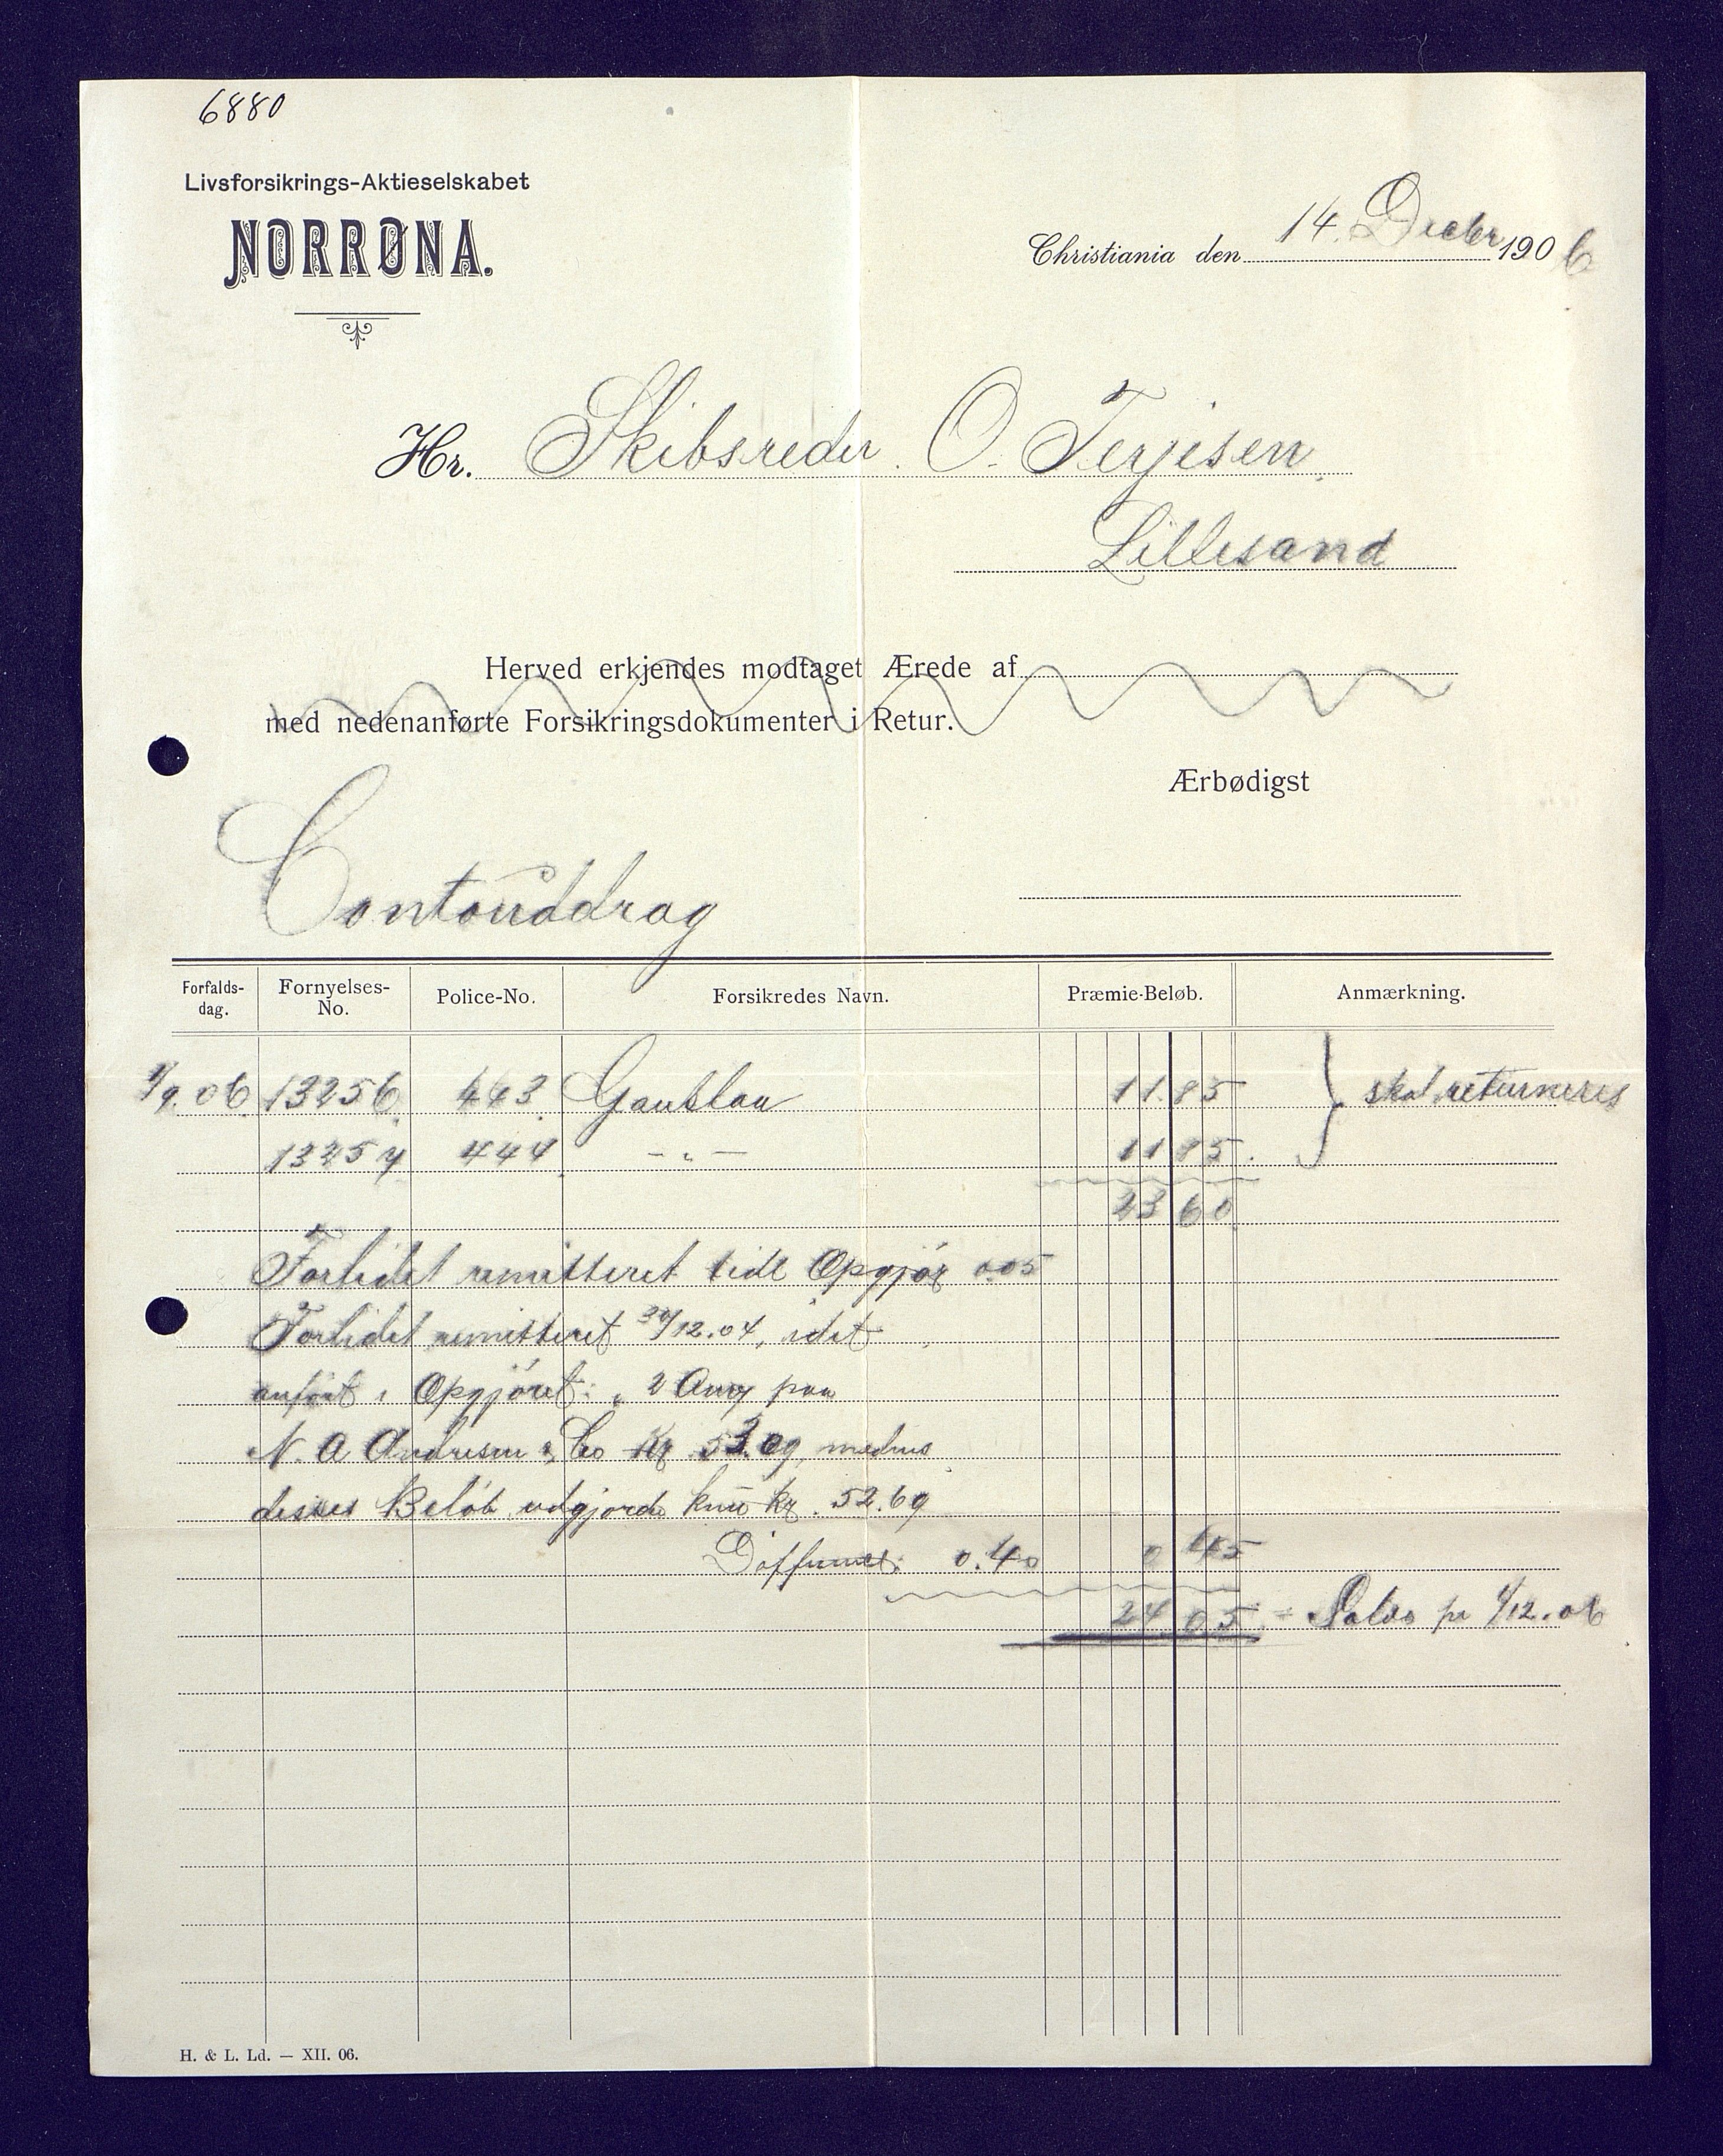 6880
Livsforsikrings-Aktieselskabet
NORRØNA.
Christiania den 14. Decbr 1906
Hr. Skibsreder O. Terjesen
Lillesand
Herved erkjendes modtaget Ærede af
med nedenanførte Forsikringsdokumenter i Retur.
Ærbødigst
Contouddrag
Forfalds-dag. Fornyelses-No. Police-No. Forsikredes Navn. Præmie-Beløb. Anmærkning.
1/9.06 13256 443 Gauslaa 11.85 skal returneres
13257 444 - " - 11 85.
23 60
Forlidet remitteret tidl Opgjør 0.05
Forlidet remitteret 30/12.04, idet
anført i Opgjøret: " 2 Anv paa
N. A Andresen & Co Kr 53.09, medens
disses Beløb udgjorde kun kr. 52.69
Differance: 0.40 0 45
24 05 = Saldo pr 1/12.06
H. & L. Ld. — XII. 06.